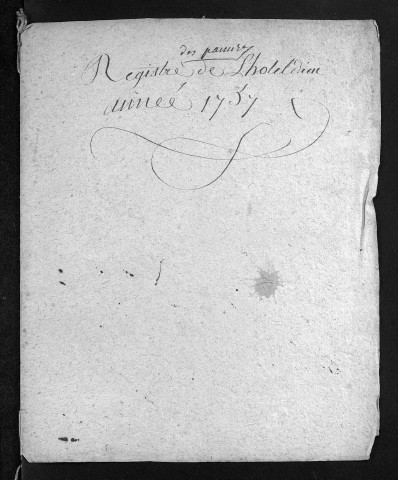 des pauvres
Registre de Lhotel dieu
année 1757